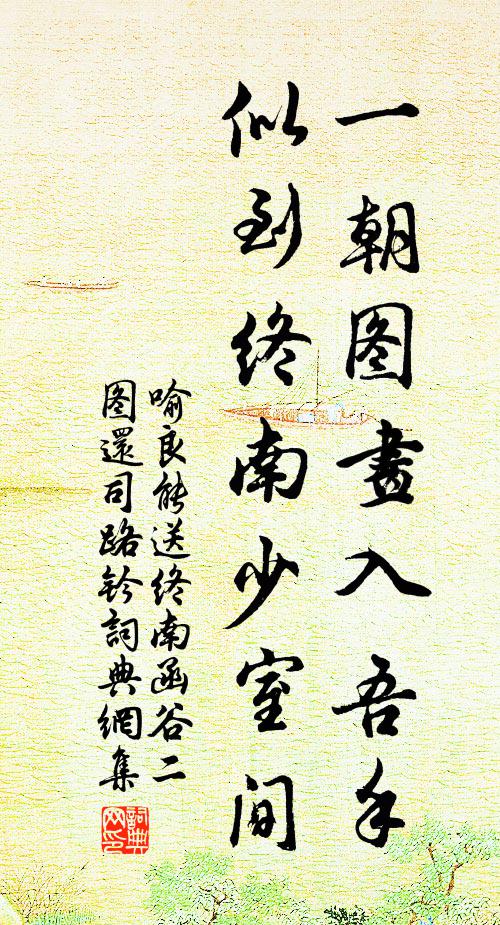 一朝图畫入吾手
似到终南少室间
喻良能送终南函谷二
图還司路钤詞典網集
詞典網印